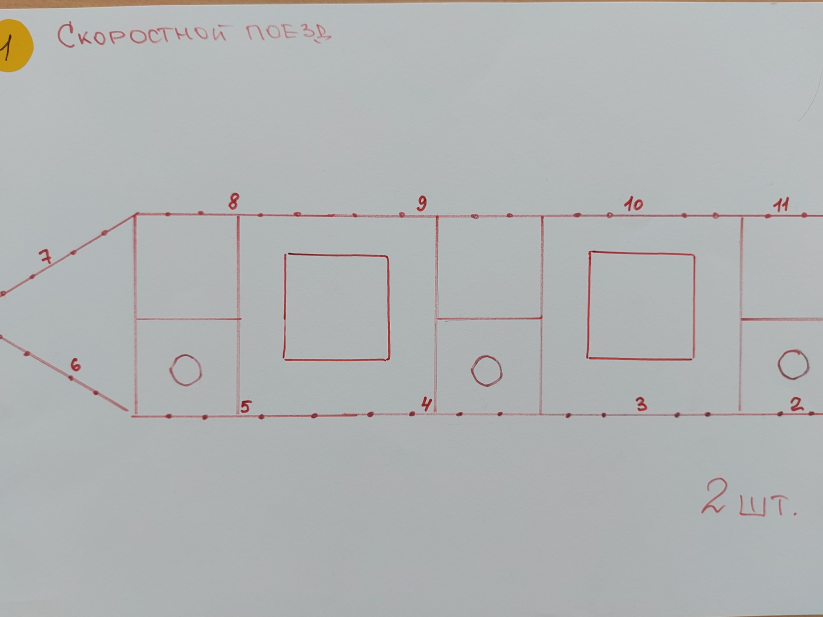 1 Скоростной поезд
8 9 10 11
7
6
5 4 3 2
2 шт.